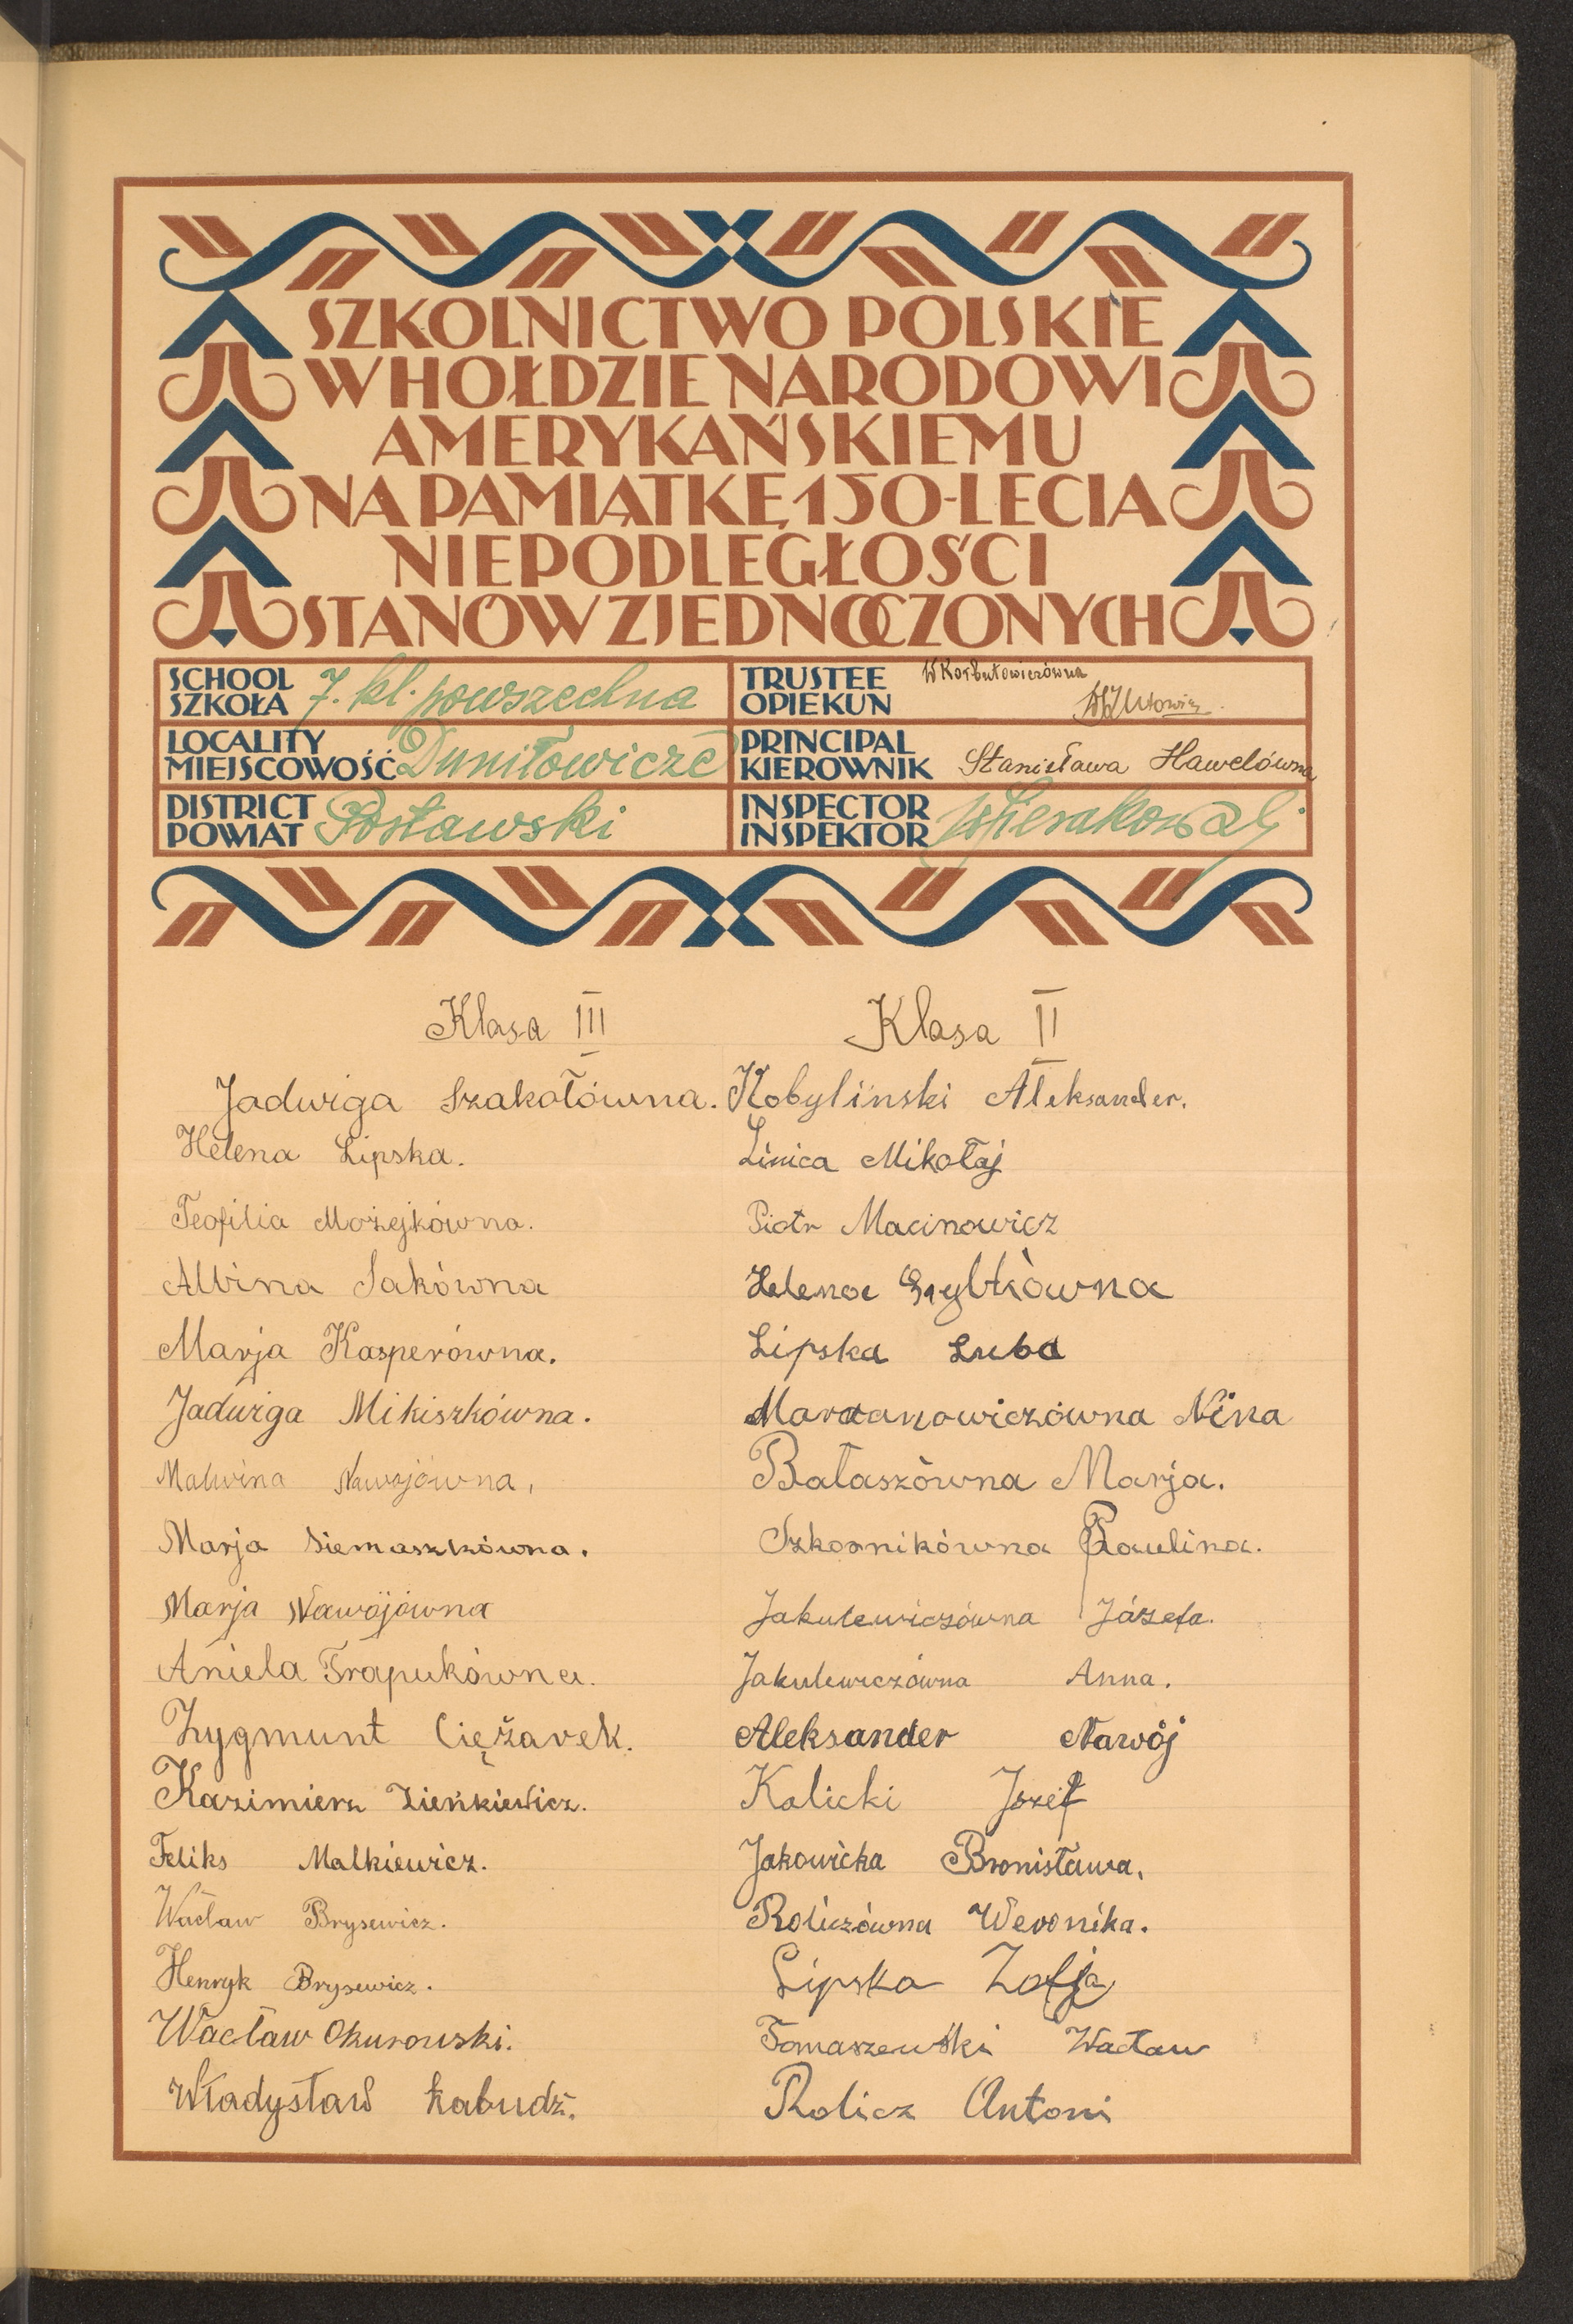 SZKOLNICTWO POLSKIE
W HOŁDZIE NARODOWI
AMERYKAŃSKIEMU
NA PAMIĄTKĘ 150-LECIA
NIEPODLEGŁOŚCI
STANÓW ZJEDNOCZONYCH
SCHOOL
SZKOŁA 7. kl. powszechna
TRUSTEE
OPIEKUN W Korbutowiczówna
LOCALITY
MIEJSCOWOŚĆ Duniłowicze
PRINCIPAL
KIEROWNIK Stanisława Hawelówna
DISTRICT
POWIAT Postawski
INSPECTOR
INSPEKTOR
Klasa III
Jadwiga Szakołówna.
Helena Lipska.
Teofilia Możejkówna.
Albina Sakówna
Marja Kasperówna.
Jadwiga Mikiszkówna.
Malwina Nawojówna,
Marja Siemaszkówna.
Marja Nawojówna
Aniela Trapukówna.
Zygmunt Ciężarek.
Kazimierz Zieńkiewicz.
Feliks Malkiewicz.
Wacław Brysewicz.
Henryk Brysewicz.
Wacław Okurowski.
Władysław Łabudź.
Klasa II
Kobyliński Aleksander.
Linica Mikołaj
Piotr Macinowicz
Helena Grybkówna
Lipska Luba
Marcanowiczówna Nina
Bałaszówna Marja.
Szkornikówna Paulina.
Jakulewiczówna Józefa.
Jakulewiczówna Anna.
Aleksander Nawój
Kalicki Józef
Jakowicka Bronisława.
Roliczówna Weronika.
Lipska Zofja
Tomaszewski Wacław
Rolicz Antoni